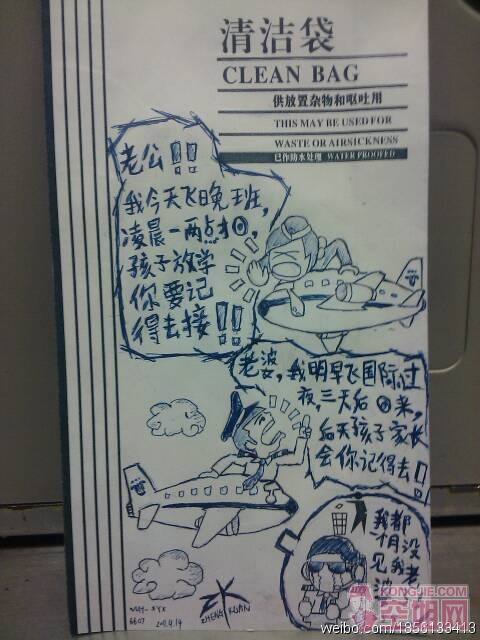 清洁袋
CLEAN BAG
供放置杂物和呕吐用
THIS MAY BE USED FOR
WASTE OR AIRSICKNESS
已作防水处理 WATER PROOFED
老公!!
我今天飞晚班,
凌晨一两点才回,
孩子放学
你要记
得去接!!
老婆,我明早飞国际,过
夜,三天后回来,
后天孩子家长
会你记得去!
我都
一个月没
见我老
婆
ZHENG HUAN
6607
2011.4.14
KONGJIE.COM
空姐网
weibo.com/1856133413